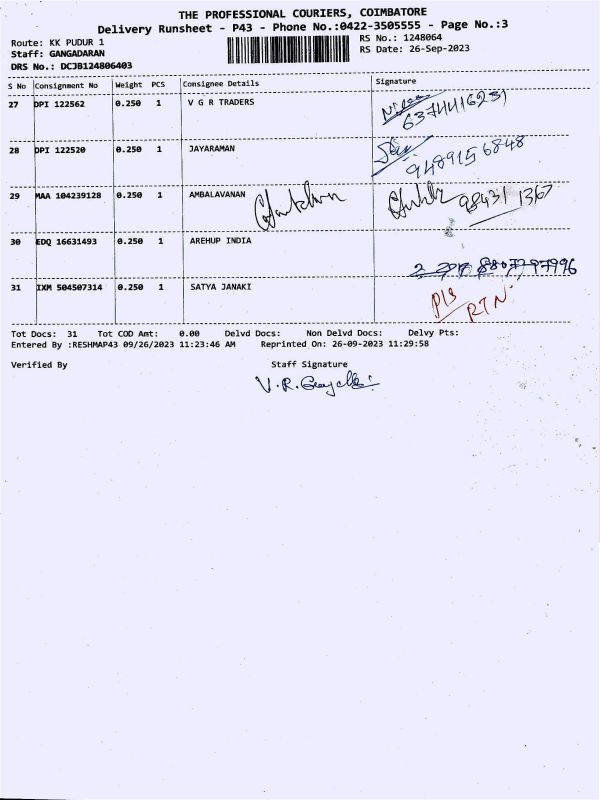 THE PROFESSIONAL COURIERS, COIMBATORE
Delivery Runsheet - P43 - Phone No.:0422-3505555 - Page No.:3
Route: KK PUDUR 1 RS No.: 1248064
Staff: GANGADARAN RS Date: 26-Sep-2023
DRS No.: DCJB124806403
S No Consignment No Weight PCS Consignee Details Signature
27 DPI 122562 0.250 1 V G R TRADERS
6374416231
28 DPI 122520 0.250 1 JAYARAMAN
948915 6848
29 MAA 104239128 0.250 1 AMBALAVANAN 98431 1367
30 EDQ 16631493 0.250 1 AREHUP INDIA
8807797996
31 IXM 504507314 0.250 1 SATYA JANAKI
RTN
Tot Docs: 31 Tot COD Amt: 0.00 Delvd Docs: Non Delvd Docs: Delvy Pts:
Entered By :RESHMAP43 09/26/2023 11:23:46 AM Reprinted On: 26-09-2023 11:29:58
Verified By Staff Signature
V.R.